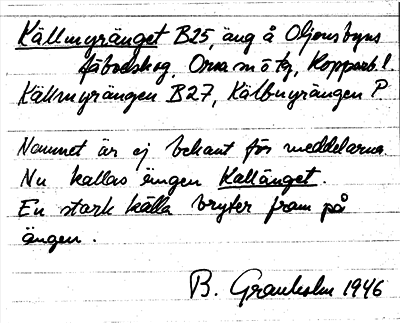 Källmyränget B25, äng å Oljonsbyns
fäbodskog, Orsa sn o tg, Kopparb. l.
Källmyrängen B27, Kälbmyrängen P.
Namnet är ej bekant för meddelarna.
Nu kallas ängen Kallänget.
En stark källa bryter fram på
ängen.
B. Granholm 1946